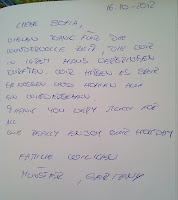 16.10.2012
LIEBE SOFIA,
VIELEN DANK FÜR DIE
WUNDERVOLLE ZEIT, DIE WIR
IN IHREM HAUS VERBRINGEN
DURFTEN. WIR HABEN ES SEHR
GENOSSEN UND HOFFEN AUF
EIN WIEDERSEHEN.
THANK YOU VERY MUCH FOR
ALL
WE REALLY ENJOY OUR HOLIDAY
FAMILIE
MÜNSTER, GERMANY